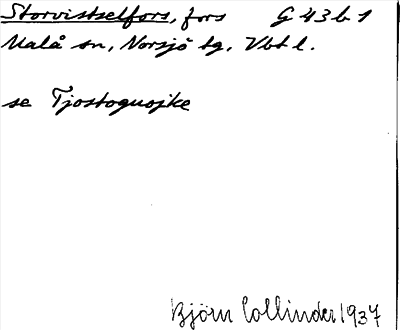 Storvistselfors, fors G 43 b 1
Malå sn, Norsjö tg, Vbtl.
se Tjostoguojke
Björn Collinder 1937